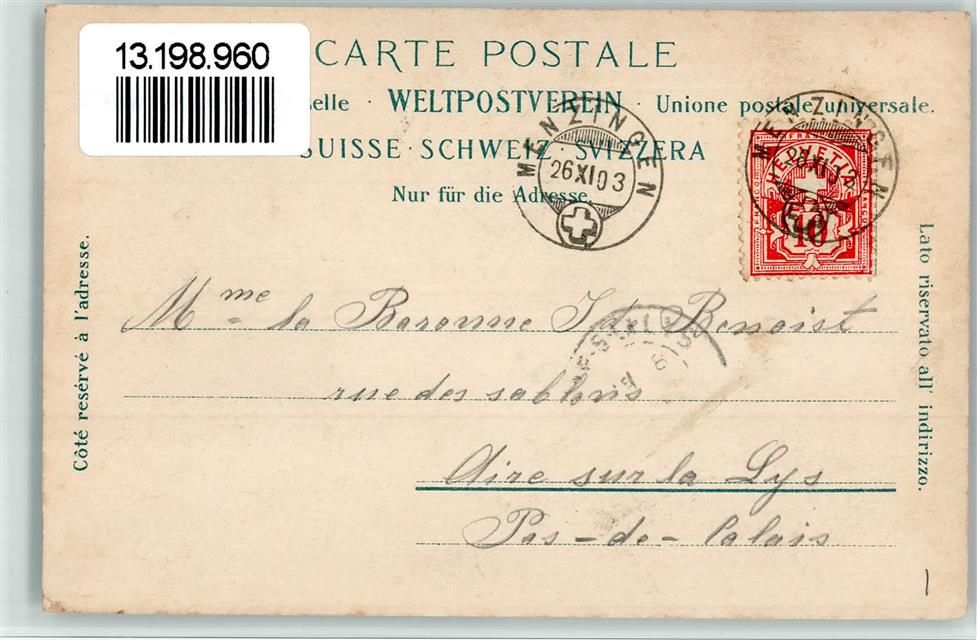 13.198.960
CARTE POSTALE
elle · WELTPOSTVEREIN · Unione postale universale.
SUISSE · SCHWEIZ SVIZZERA
Nur für die Adresse.
MENZINGEN
26 XI 03
MENZINGEN
26 XI 03
FRANCO
HELVETIA
10
Côté resérvé à l'adresse.
Lato riservato all' indirizzo.
Mme la Baronne Benoist
rue des sablons
Aire sur la Lys
Pas-de-Calais